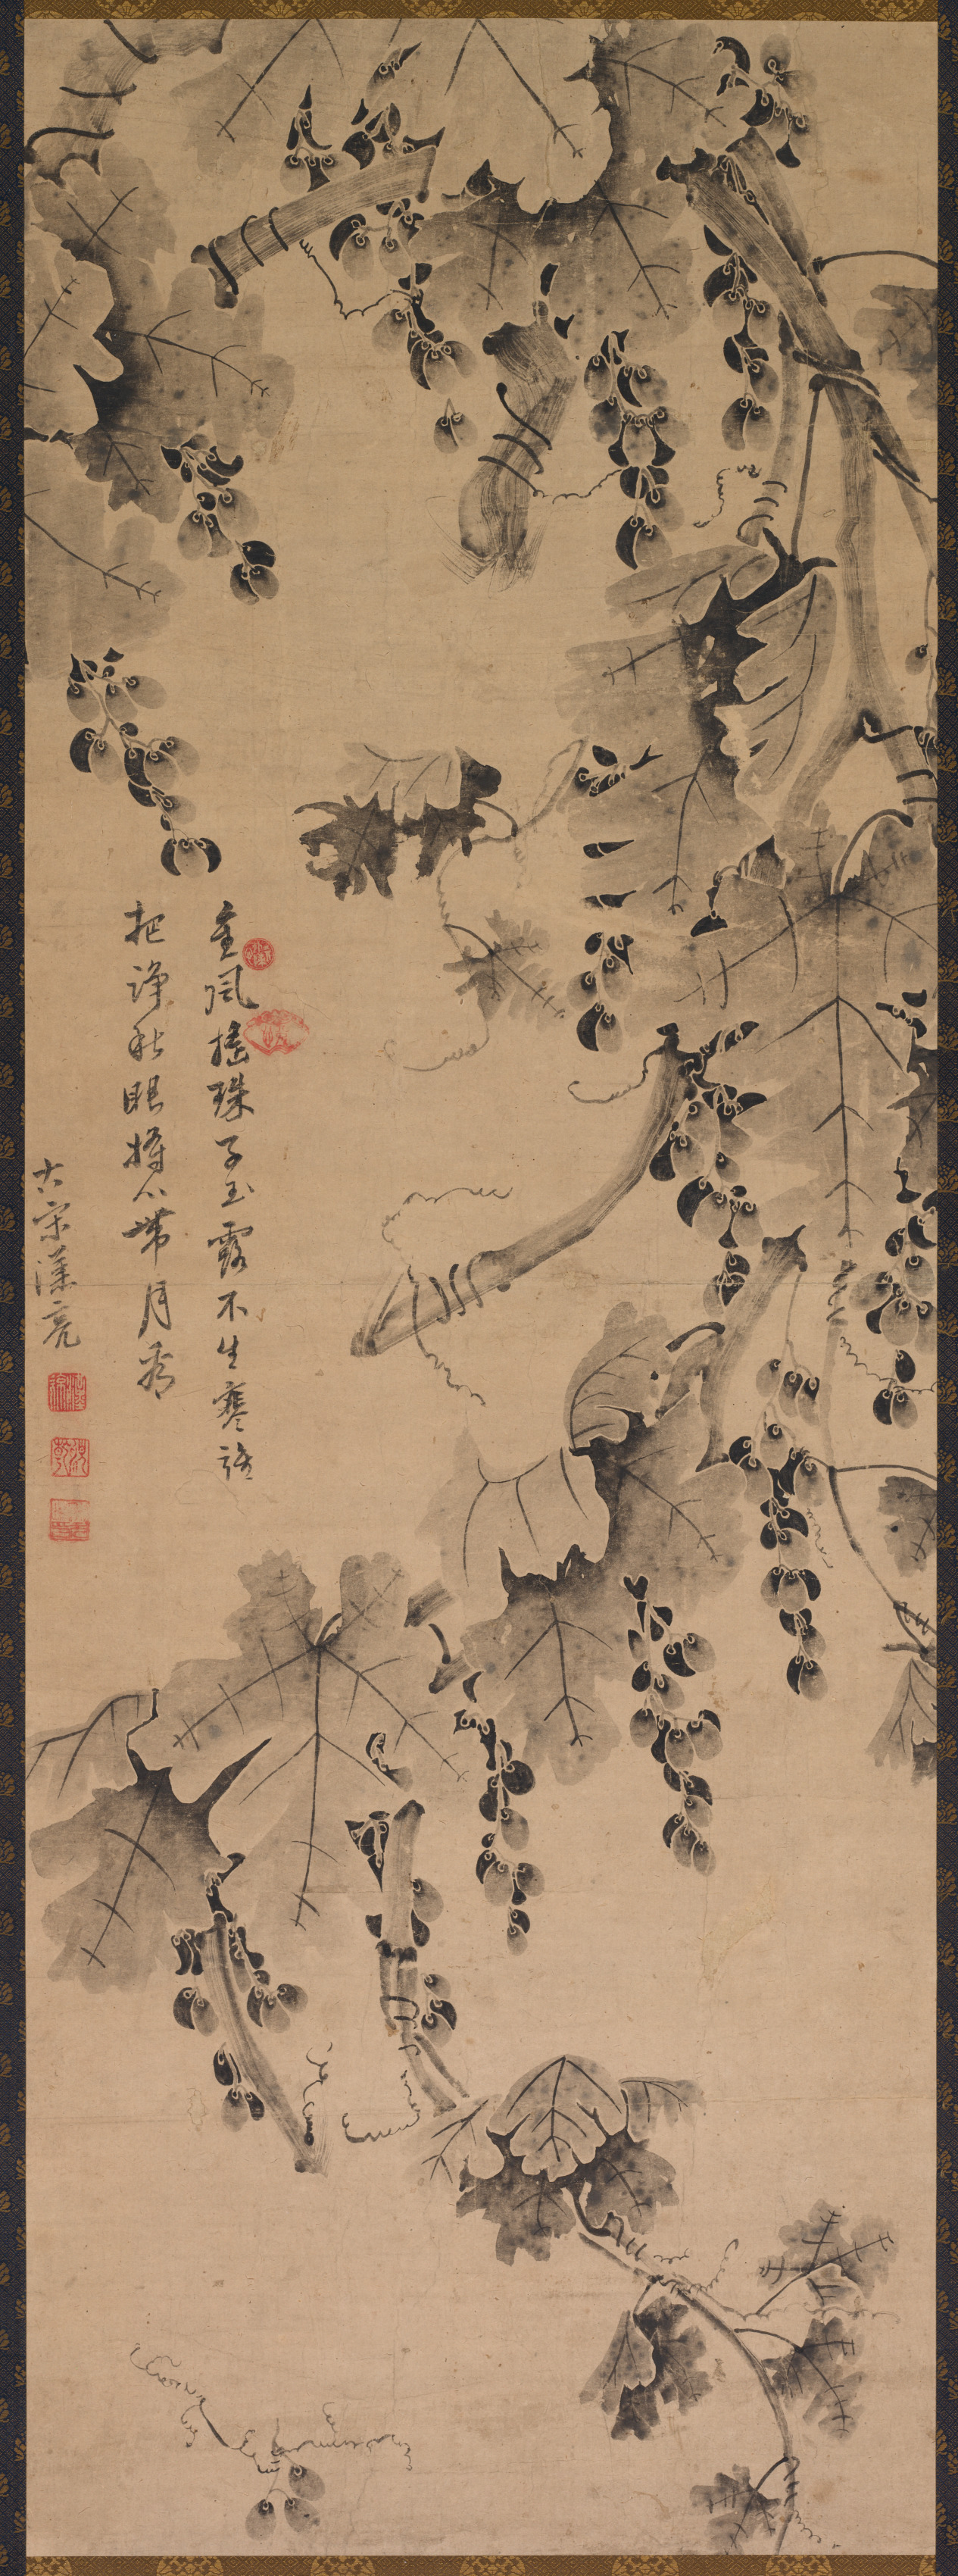 金風搖珠子玉露不生寒誰
把淨秋眼將心帶月看
大宋漢亮